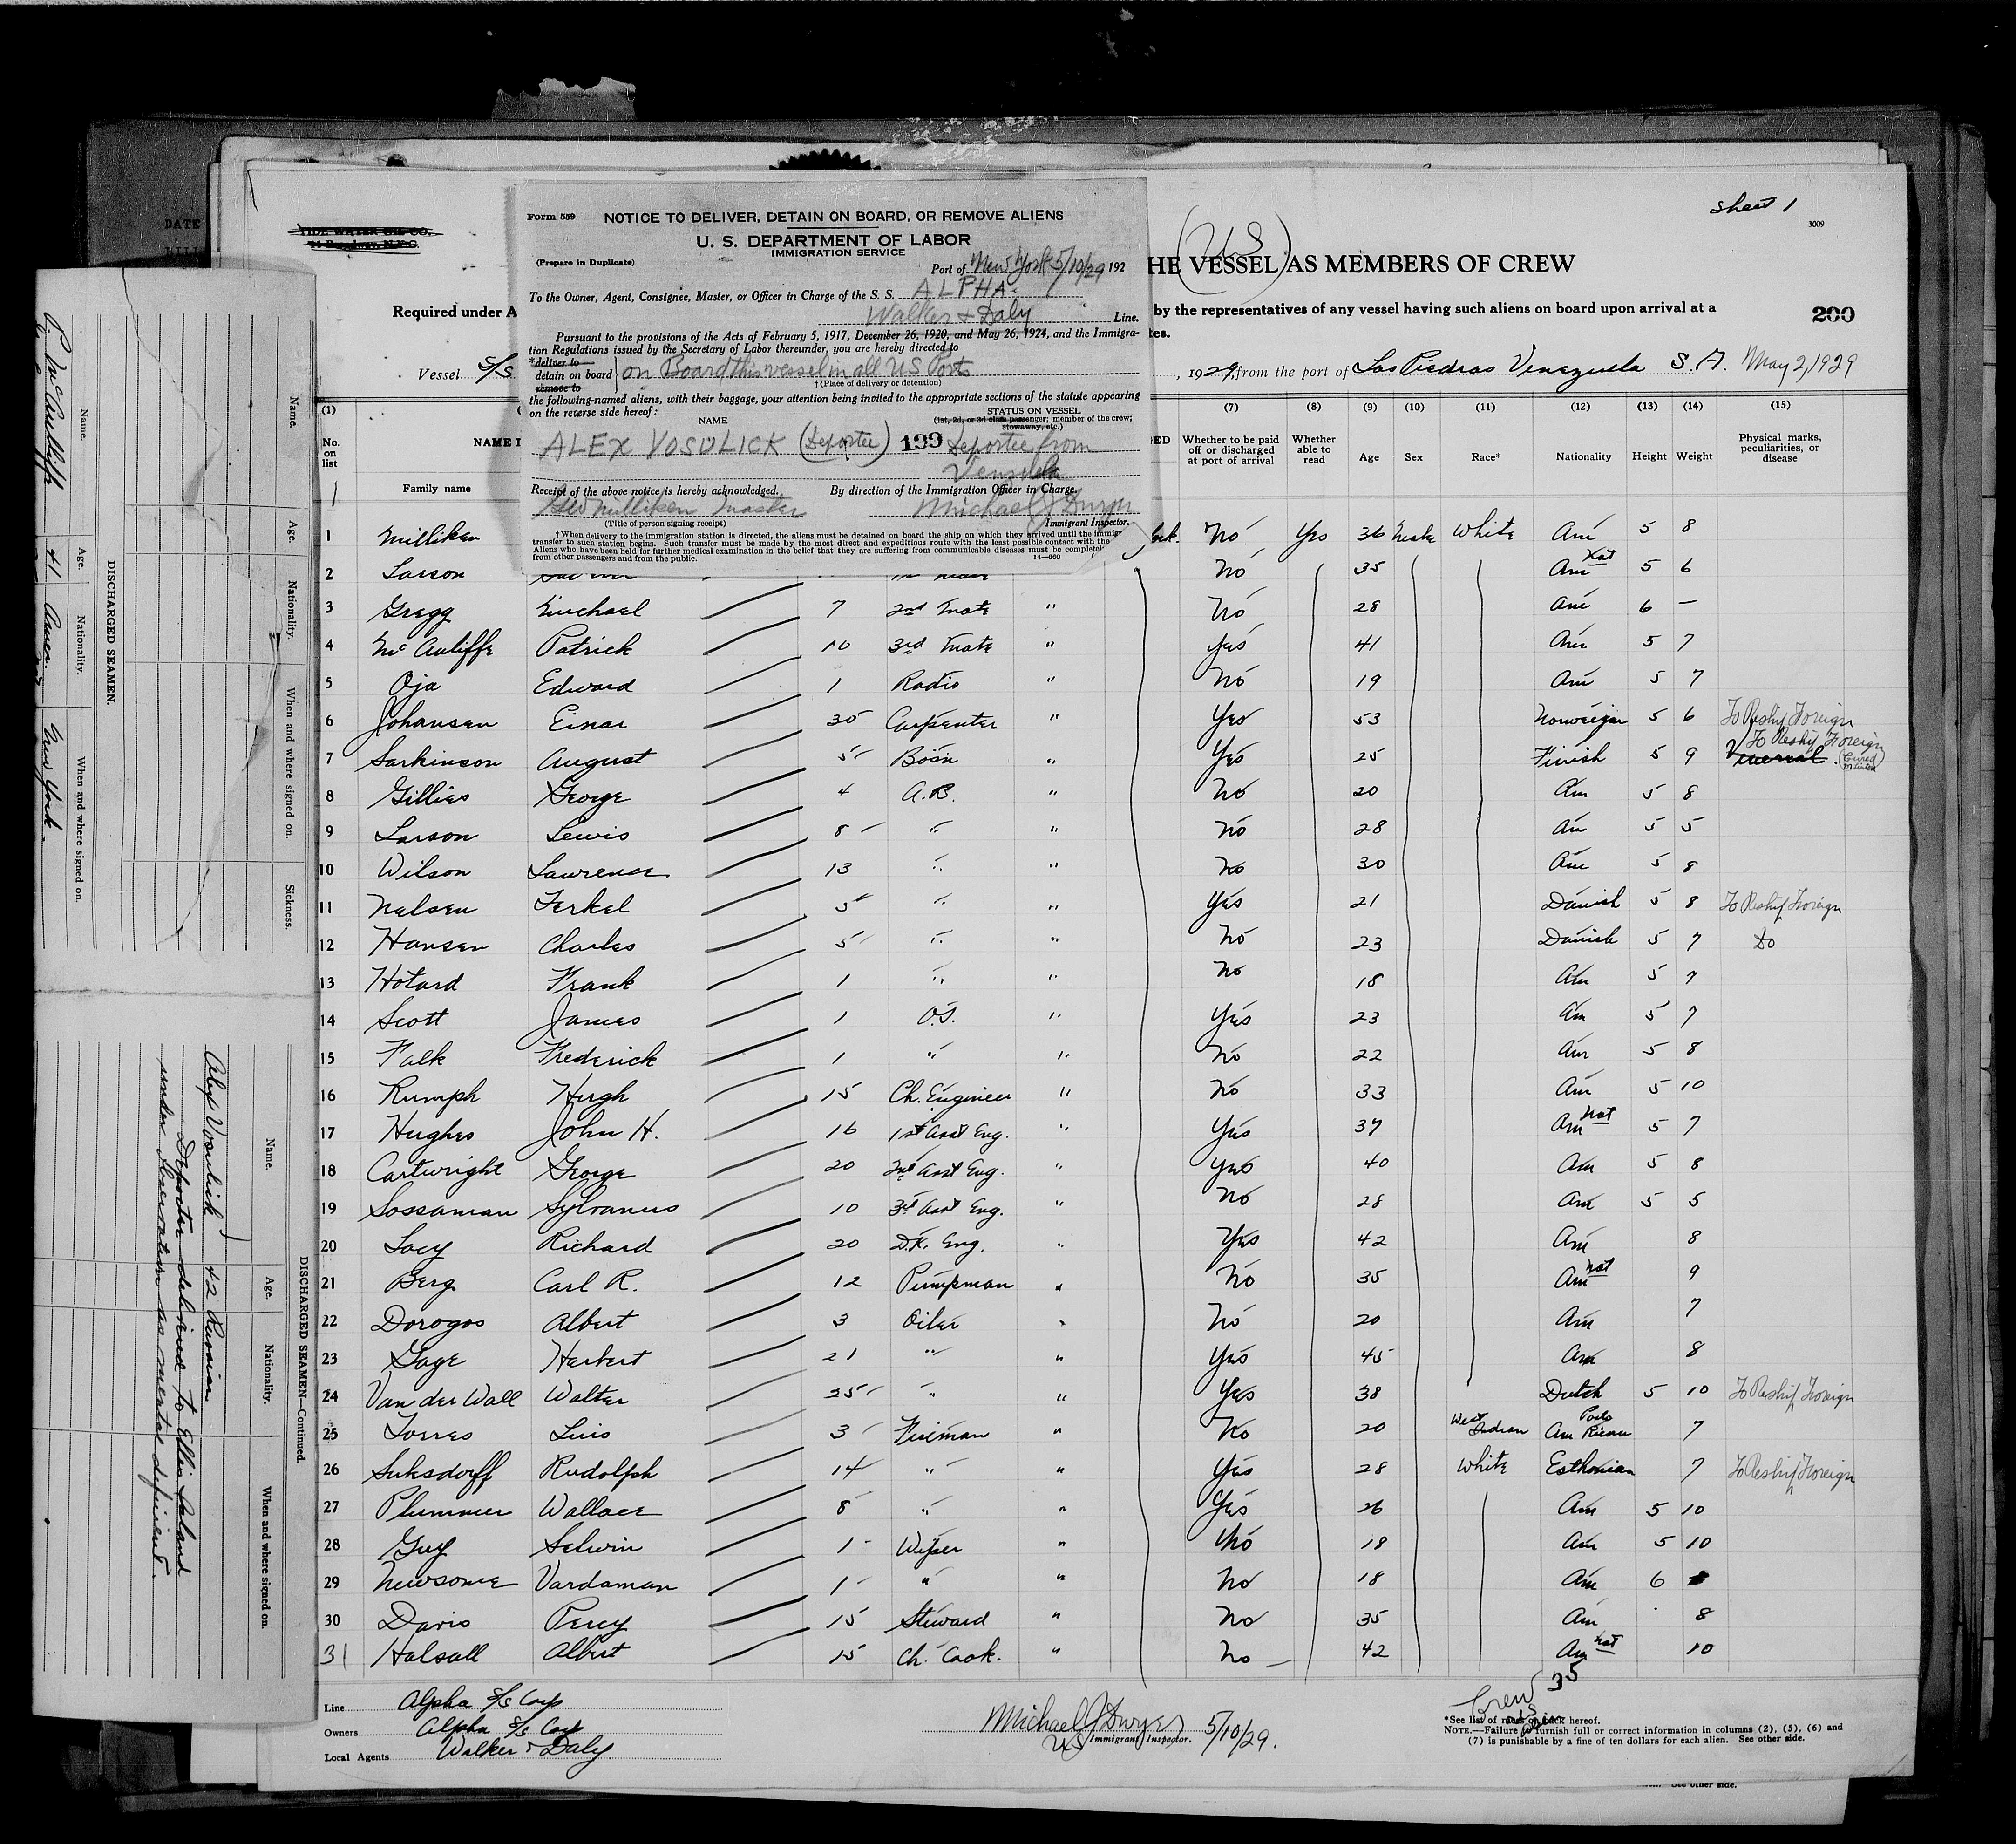 DATE
Sheet 1
3009
TIDE WATER OIL CO.
11 Broadway, N.Y.C.
(US)
HE VESSEL AS MEMBERS OF CREW
Required under A
by the representatives of any vessel having such aliens on board upon arrival at a
tes.
200
Vessel S/S
, 1929, from the port of Las Piedras Venezuela S.A. May 2, 1929
Form 559 NOTICE TO DELIVER, DETAIN ON BOARD, OR REMOVE ALIENS
U. S. DEPARTMENT OF LABOR
IMMIGRATION SERVICE
(Prepare in Duplicate)
Port of New York 5/10/29 192
To the Owner, Agent, Consignee, Master, or Officer in Charge of the S. S. ALPHA
Walker & Daly Line.
Pursuant to the provisions of the Acts of February 5, 1917, December 26, 1920, and May 26, 1924, and the Immigra-
tion Regulations issued by the Secretary of Labor thereunder, you are hereby directed to
*deliver to
detain on board } on Board this vessel in all US Ports
remove to
†(Place of delivery or detention)
the following-named aliens, with their baggage, your attention being invited to the appropriate sections of the statute appearing
on the reverse side hereof:
NAME
STATUS ON VESSEL
(1st, 2d, or 3d class passenger; member of the crew;
stowaway, etc.)
ALEX VOSULICK (Deportee) 199 Deportee from
Venzuela
Receipt of the above notice is hereby acknowledged. By direction of the Immigration Officer in Charge,
Geo Milliken Master Michael J Dwyer
(Title of person signing receipt) Immigrant Inspector.
†When delivery to the immigration station is directed, the aliens must be detained on board the ship on which they arrived until the immigr
transfer to such station begins. Such transfer must be made by the most direct and expeditious route with the least possible contact with the
Aliens who have been held for further medical examination in the belief that they are suffering from communicable diseases must be completel
from other passengers and from the public. 14—660
(1) (7) (8) (9) (10) (11) (12) (13) (14) (15)
No. on list
NAME I
Family name
GED
Whether to be paid off or discharged at port of arrival
Whether able to read
Age
Sex
Race*
Nationality
Height
Weight
Physical marks, peculiarities, or disease
1 Milliken No Yes 36 Male White Am 5 8
2 Larson No 35 Am Nat 5 6
3 Gregg Michael 7 2nd Mate " No 28 Am 6 —
4 McAuliffe Patrick 10 3rd Mate " Yes 41 Am 5 7
5 Oja Edward 1 Radio " No 19 Am 5 7
6 Johansen Einar 35 Carpenter " Yes 53 Norwegian 5 6 To Reship Foreign
7 Sarkinson August 5 Bosn " Yes 25 Finish 5 9 To Reship Foreign Venereal (Cured
8 Gillies George 4 A.B. " No 20 Am 5 8
9 Larson Lewis 8 " " No 28 Am 5 5
10 Wilson Lawrence 13 " " No 30 Am 5 8
11 Nelsen Terkel 5 " " Yes 21 Danish 5 8 To Reship Foreign
12 Hansen Charles 5 " " No 23 Danish 5 7 do
13 Hotard Frank 1 " " No 18 Am 5 7
14 Scott James 1 O.S. " Yes 23 Am 5 7
15 Falk Frederick 1 " " No 22 Am 5 8
16 Rumph Hugh 15 Ch. Engineer " No 33 Am 5 10
17 Hughes John H. 16 1st Asst Eng. " Yes 37 Am nat 5 7
18 Cartwright George 20 2nd Asst Eng. " Yes 40 Am 5 8
19 Sossaman Sylvanus 10 3rd Asst Eng. " No 28 Am 5 5
20 Loey Richard 20 D.K. Eng. " Yes 42 Am 8
21 Berg Carl R. 12 Pumpman " No 35 Am nat 9
22 Dorogos Albert 3 Oiler " No 20 Am 7
23 Gage Herbert 21 " " Yes 45 Am 8
24 Van der Wall Walter 25 " " Yes 38 Dutch 5 10 To Reship Foreign
25 Torres Luis 3 Fireman " No 20 West Indian Am Porto Rican 7
26 Suksdorff Rudolph 14 " " Yes 28 White Esthonian 7 To Reship Foreign
27 Plummer Wallace 8 " " Yes 26 Am 5 10
28 Guy Selwin 1 Wiper " No 18 Am 5 10
29 Newsome Vardaman 1 " " No 18 Am 6
30 Davis Percy 15 Steward " No 35 Am 8
31 Halsall Albert 15 Ch. Cook. " No 42 Am nat 10
35
Crew
Line Alpha S/S Corp
Owners Alpha S/S Corp
Local Agents Walker & Daly
Michael J Dwyer 5/10/29.
US Immigrant Inspector.
*See list of races on back hereof.
NOTE.—Failure to furnish full or correct information in columns (2), (5), (6) and
(7) is punishable by a fine of ten dollars for each alien. See other side.
See other side.
DISCHARGED SEAMEN.
Name. Age. Nationality. When and where signed on. Sickness.
Name. Age. Nationality. When and where signed on.
P. McAuliffe 41 Amer. New York.
DISCHARGED SEAMEN—Continued.
Name. Age. Nationality. When and where signed on.
Alex Vosulick 42 Russian
Deportee delivered to Ellis Island
under observation as mental deficient.